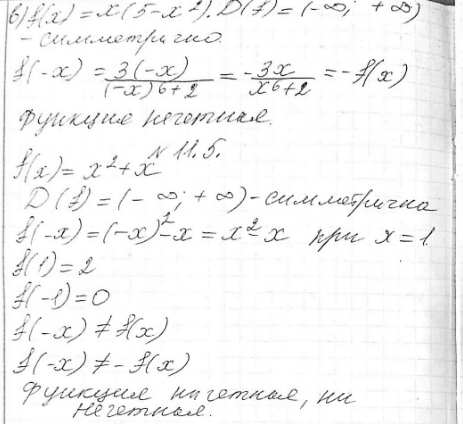 в) f(x) = x(5-x²). D(f) = (-∞; +∞)
- симметрично.
f(-x) = 3(-x)/((-x)6+2) = -3x/(x6+2) = -f(x)
Функция нечетная.
N 11.5.
f(x) = x²+x
D(f) = (-∞; +∞) - симметрична
f(-x) = (-x)²-x = x²-x при x = 1
f(1) = 2
f(-1) = 0
f(-x) ≠ f(x)
f(-x) ≠ -f(x)
Функция ни четная, ни
нечетная.